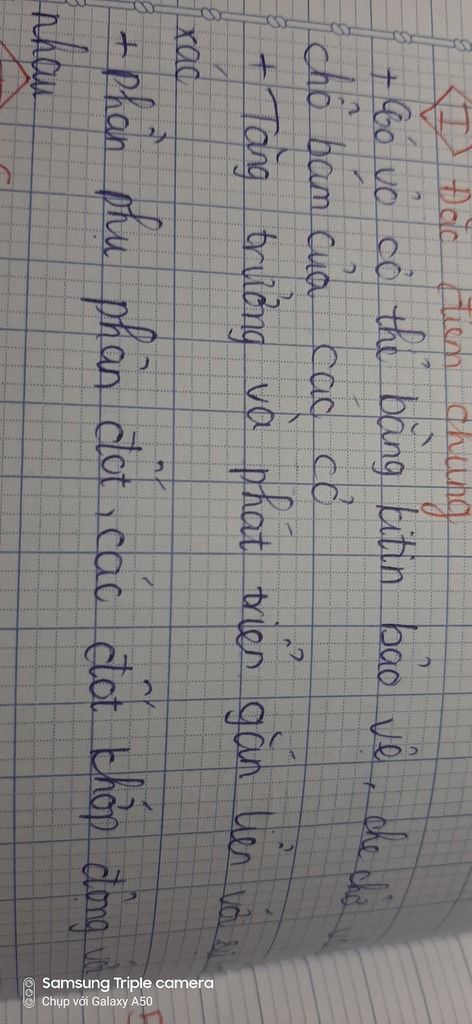 I Đặc điểm chung
+ Bộ vỏ cơ thể bằng kitin bảo vệ, che chở
chỗ bám của các cơ
+ Tăng trưởng và phát triển gắn liền với sự
xác
+ phần phụ phân đốt, các đốt khớp động với
nhau
Samsung Triple camera
Chụp với Galaxy A50